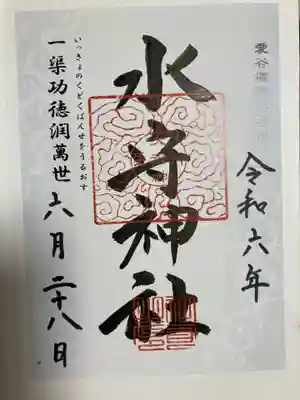 令和六年
水守神社
いっきょのくどくばんせをうるおす
一渠功徳潤萬世
六月二十八日